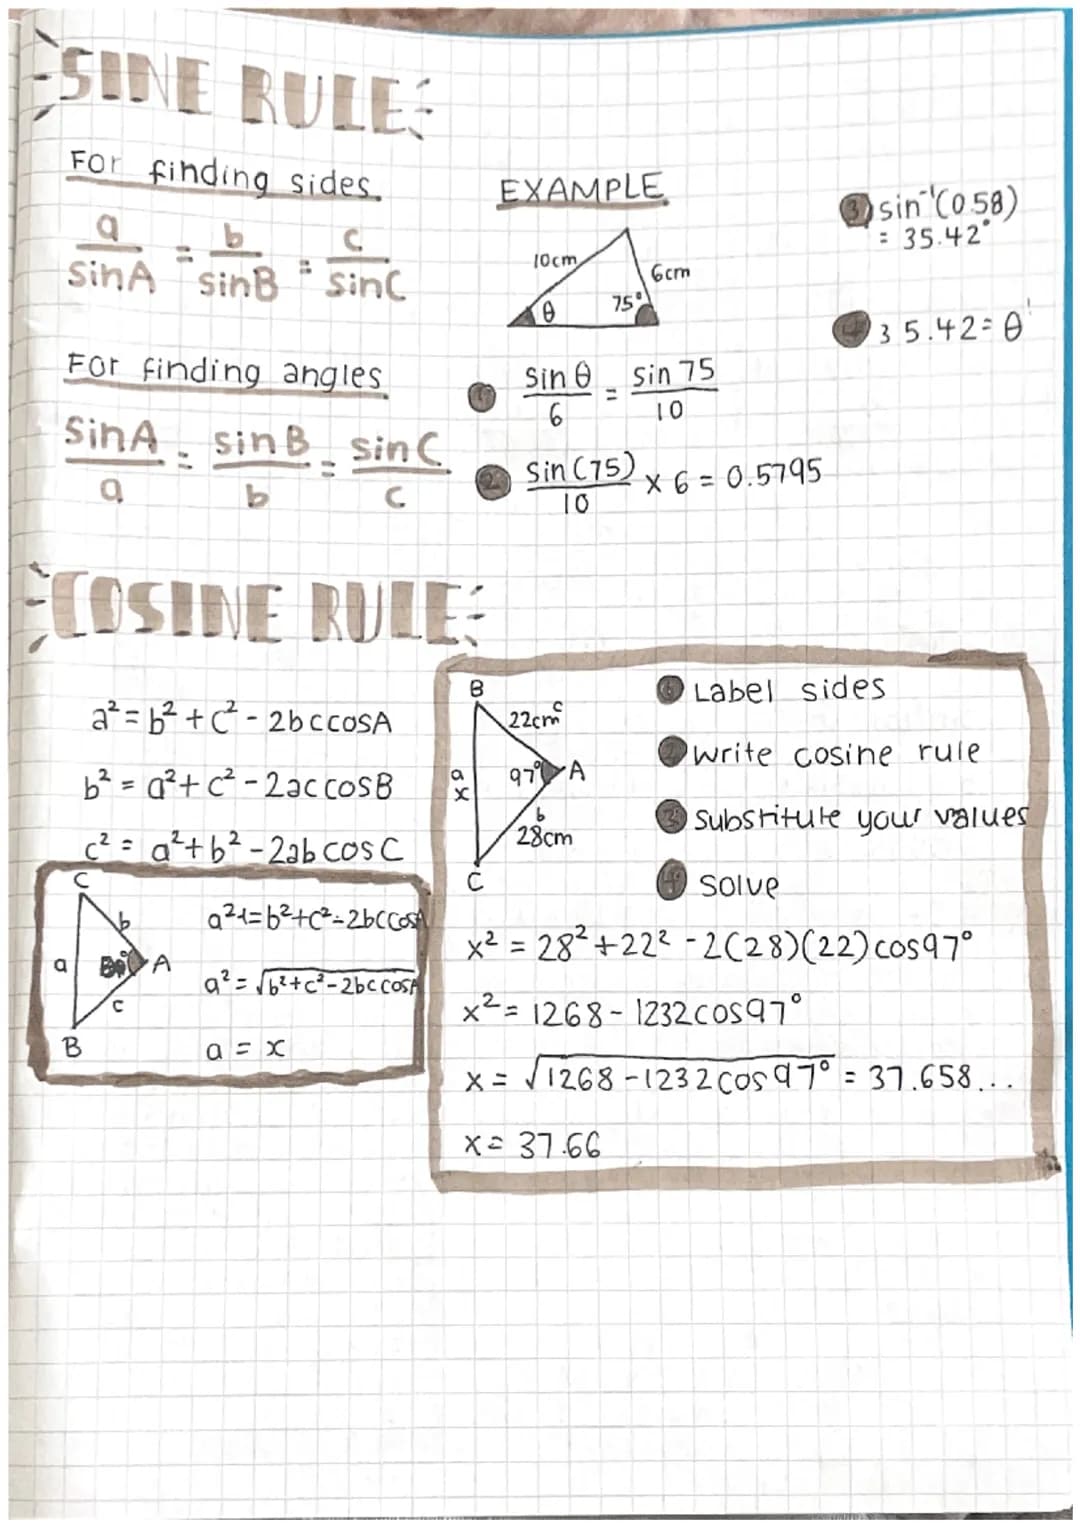 SINE RULE
For finding sides
a/sinA = b/sinB = c/sinC
For finding angles
sinA/a = sinB/b = sinC/c
EXAMPLE
10cm
6cm
θ
75°
① sin θ/6 = sin 75/10
② sin(75)/10 × 6 = 0.5795
③ sin⁻¹(0.58)
= 35.42°
④ 35.42 = θ
COSINE RULE
a² = b² + c² - 2bccosA
b² = a² + c² - 2accosB
c² = a² + b² - 2abcosC
C
b
a
A
c
B
a²+=b²+c²-2bccosA
a² = √b²+c²-2bccosA
a = x
B
22cm c
a
x
97° A
b
28cm
C
① Label sides
② Write cosine rule
③ Substitute your values
④ Solve
x² = 28² + 22² - 2(28)(22)cos97°
x² = 1268 - 1232cos97°
x = √1268 - 1232cos97° = 37.658...
x = 37.66